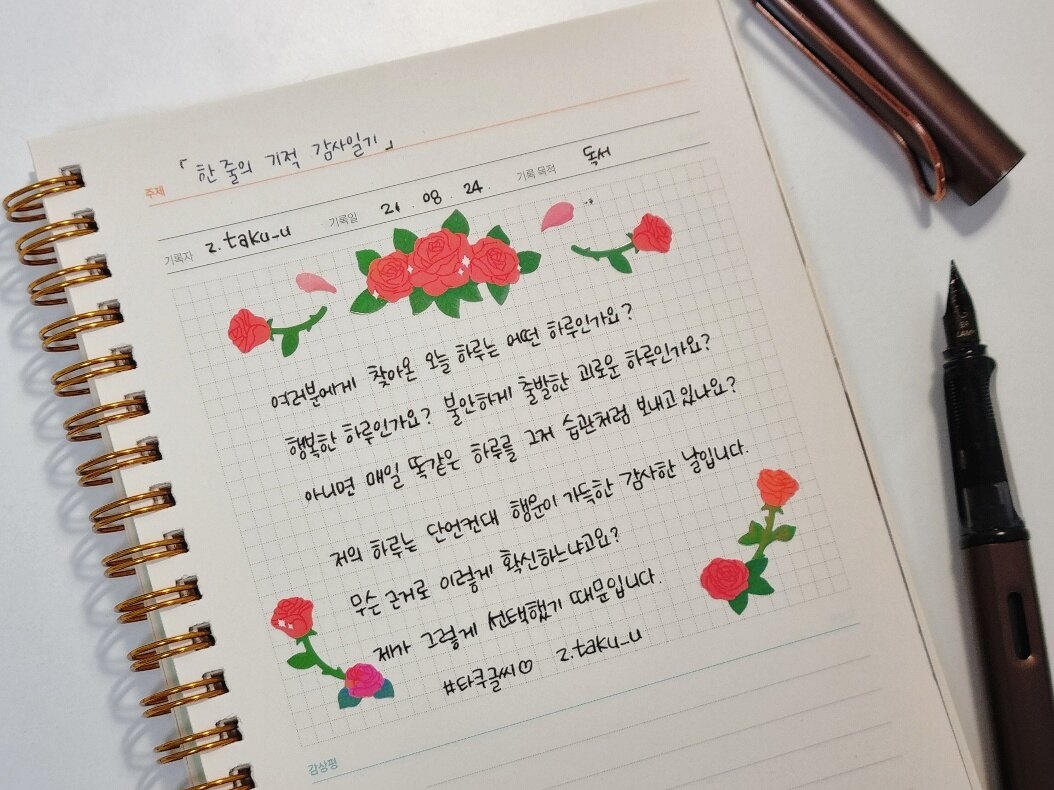 주제 「한 줄의 기적 감사일기」
기록자 z.taku_u 기록일 21. 08. 24. 기록 목적 독서
여러분에게 찾아온 오늘 하루는 어떤 하루인가요?
행복한 하루인가요? 불안하게 출발한 괴로운 하루인가요?
아니면 매일 똑같은 하루를 그저 습관처럼 보내고 있나요?
저의 하루는 단언컨대 행운이 가득한 감사한 날입니다.
무슨 근거로 이렇게 확신하느냐고요?
제가 그렇게 선택했기 때문입니다.
#타쿠글씨♡ z.taku_u
감상평